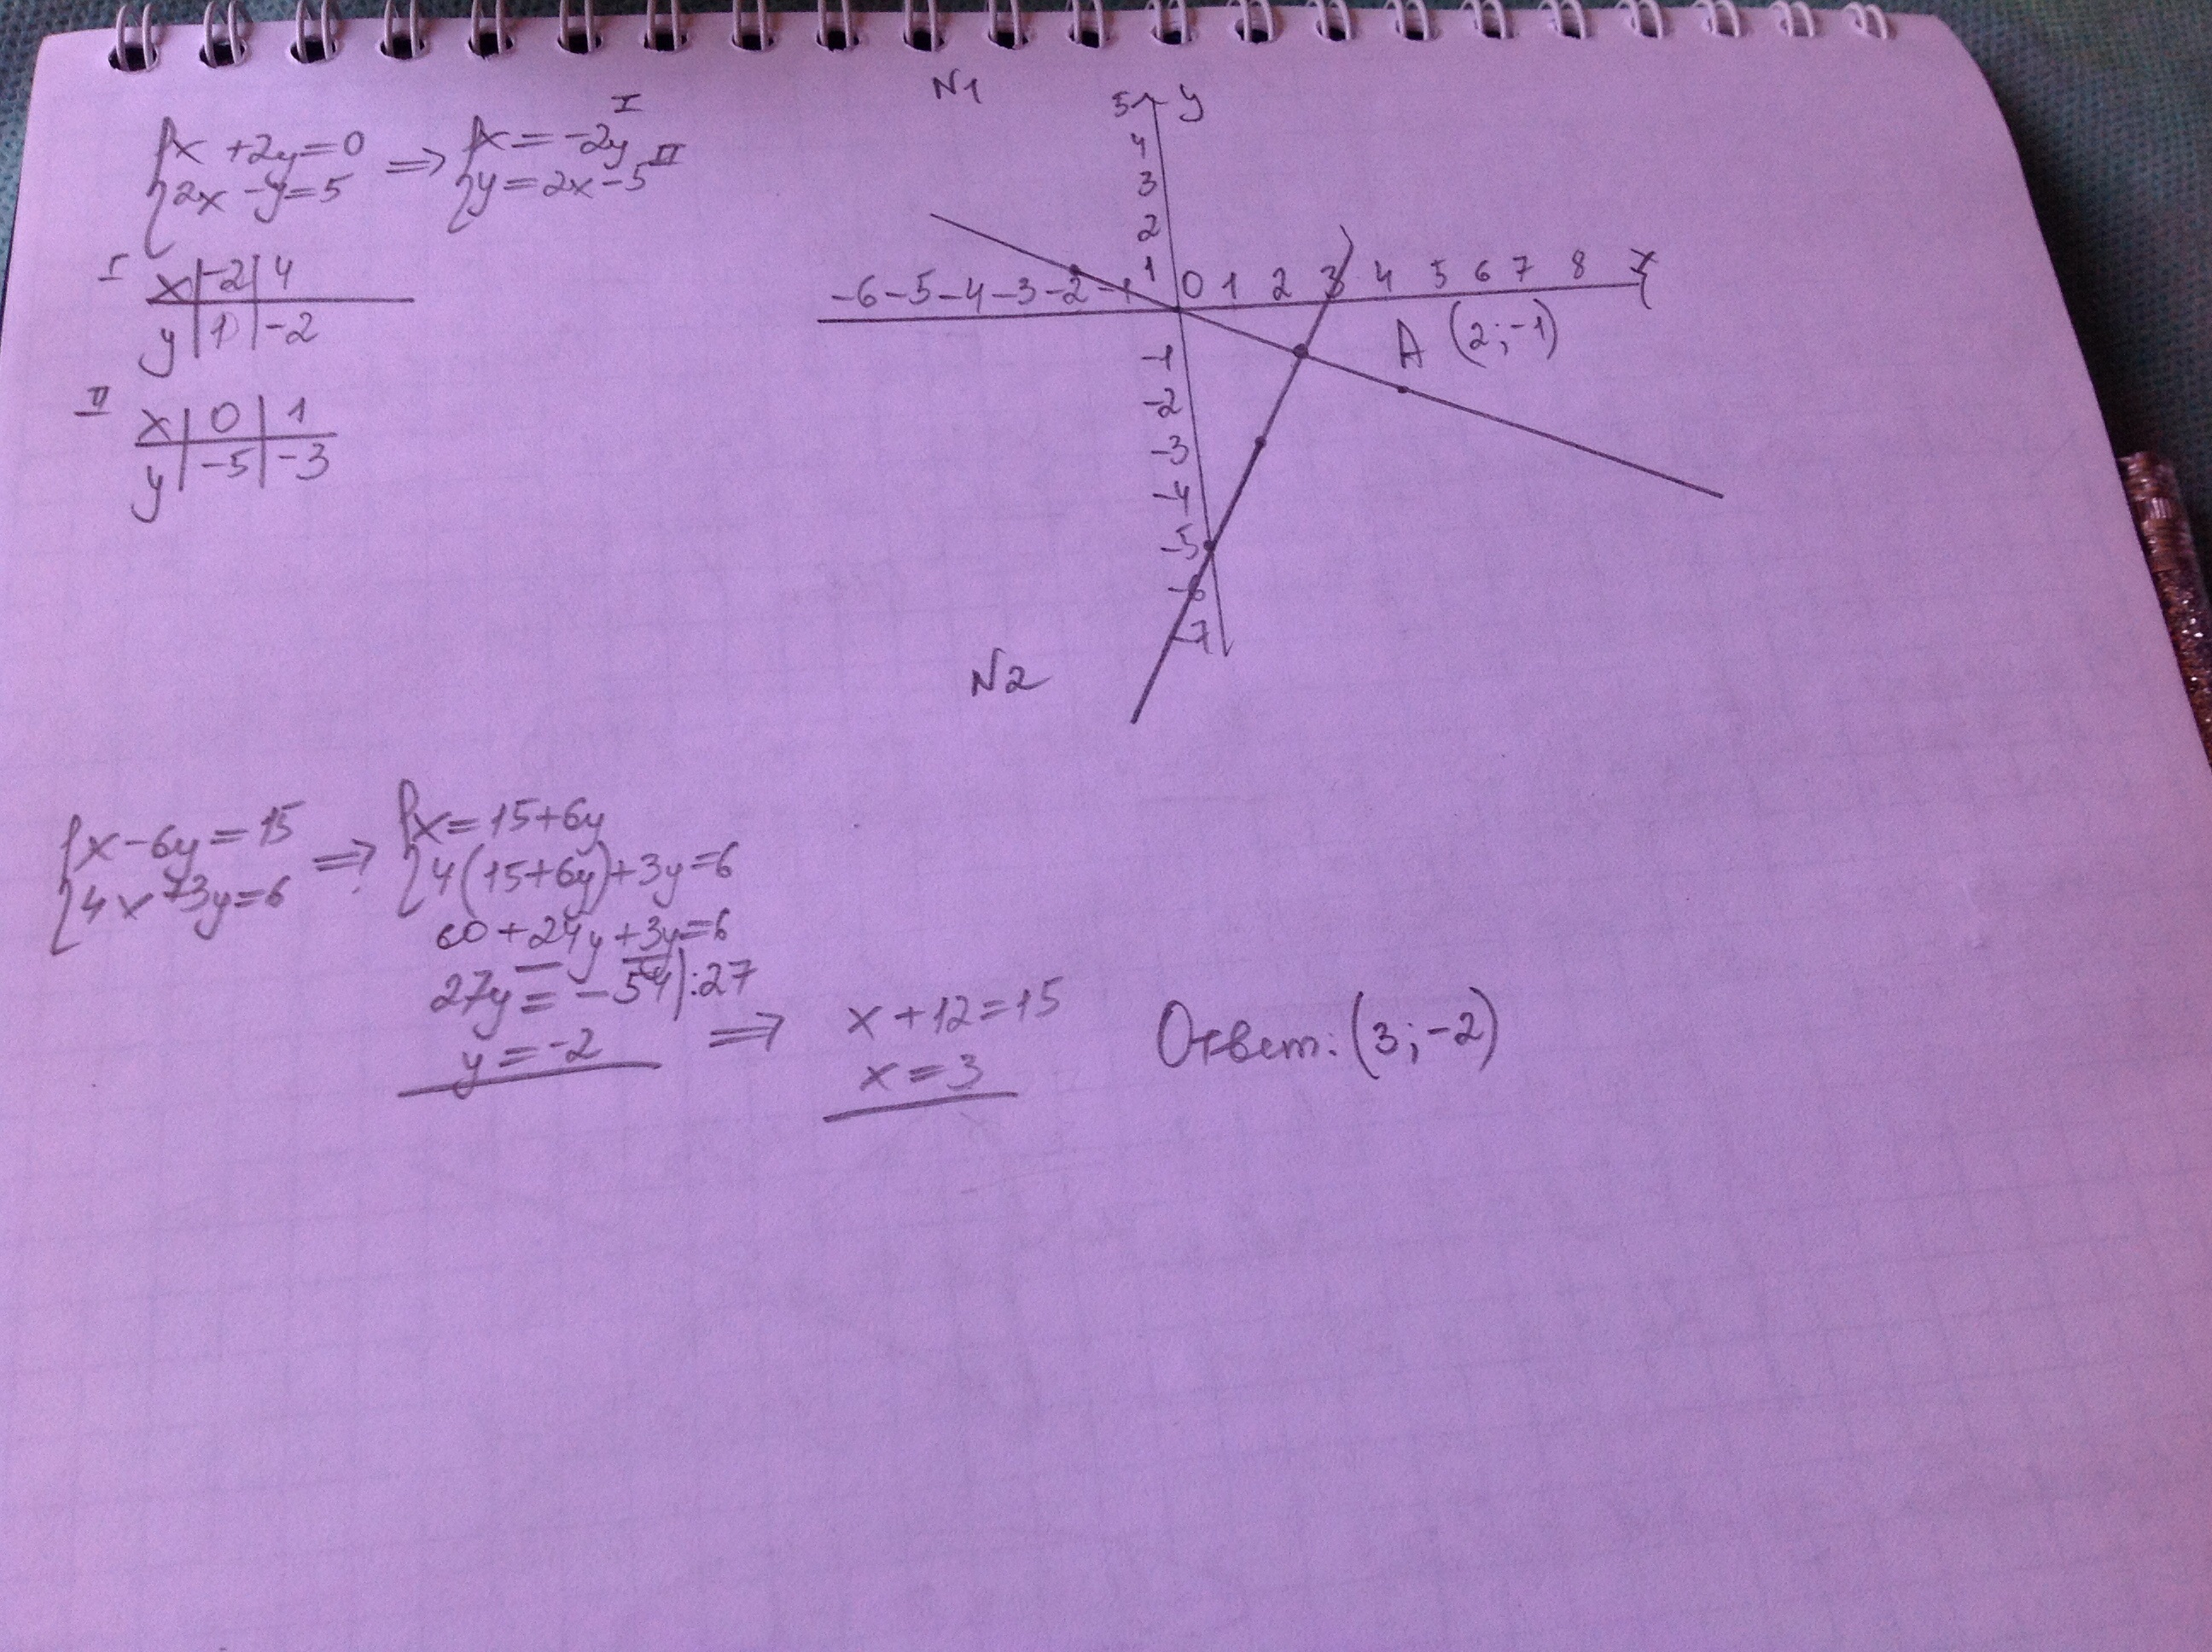 N1
{x + 2y = 0 => {x = -2y I
{2x - y = 5 {y = 2x - 5 II
I
x | -2 | 4
y | 1 | -2
II
x | 0 | 1
y | -5 | -3
y
5
4
3
2
1
-6 -5 -4 -3 -2 -1 0 1 2 3 4 5 6 7 8 x
A (2; -1)
-1
-2
-3
-4
-5
-6
-7
N2
{x - 6y = 15 => {x = 15 + 6y
{4x + 3y = 6 {4(15 + 6y) + 3y = 6
60 + 24y + 3y = 6
27y = -54 | :27
y = -2 => x + 12 = 15
x = 3
Ответ: (3; -2)